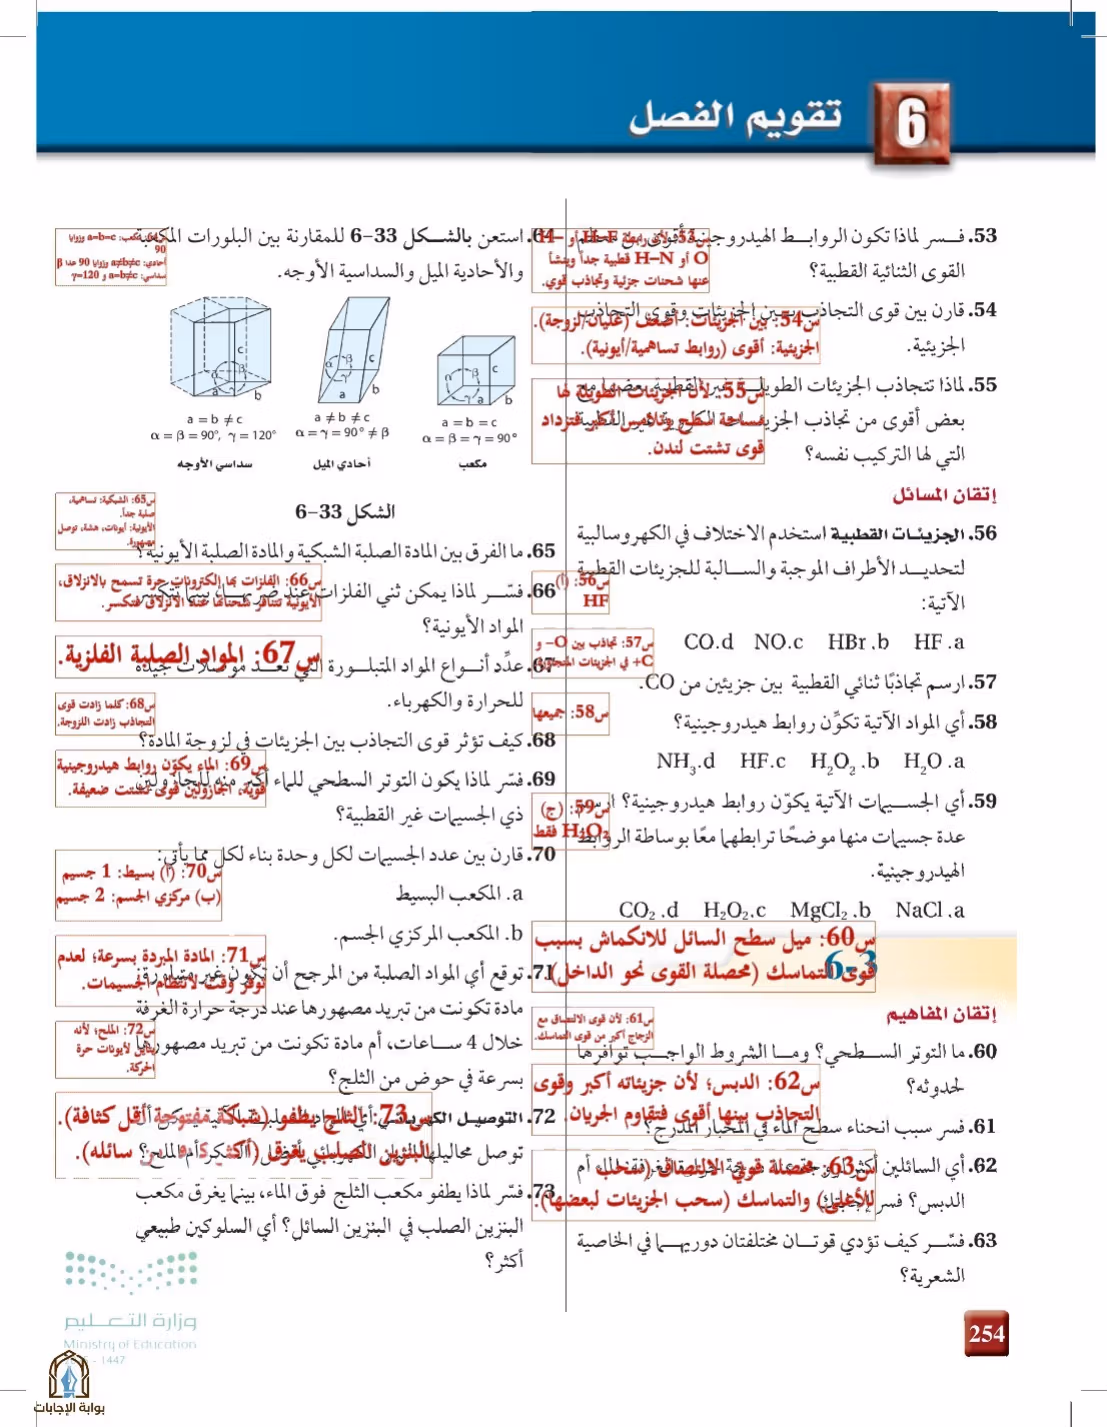 6 تقويم الفصل
53. فسر لماذا تكون الروابط الهيدروجينية أقوى من معظم
القوى الثنائية القطبية؟
س53: لأن رابطة H–F أو H–
O أو H–N قطبية جداً وينشأ
عنها شحنات جزئية وتجاذب قوي.
54. قارن بين قوى التجاذب بين الجزيئات وقوى التجاذب
الجزيئية.
س54: بين الجزيئات: أضعف (غليان/لزوجة).
الجزيئية: أقوى (روابط تساهمية/أيونية).
55. لماذا تتجاذب الجزيئات الطويلة غير القطبية بعضها مع
بعض أقوى من تجاذب الجزيئات الكروية غير القطبية
التي لها التركيب نفسه؟
س55: لأن الجزيئات الطويلة لها
مساحة سطح وتلامس أكبر فتزداد
قوى تشتت لندن.
إتقان المسائل
56. الجزيئات القطبية استخدم الاختلاف في الكهروسالبية
لتحديد الأطراف الموجبة والسالبة للجزيئات القطبية
الآتية:
HF .a HBr .b NO.c CO.d
س56: (أ)
HF
57. ارسم تجاذبًا ثنائي القطبية بين جزيئين من CO.
س57: تجاذب بين O− و
C+ في الجزيئات المتجاورة.
58. أي المواد الآتية تكوِّن روابط هيدروجينية؟
H2O .a H2O2 .b HF.c NH3.d
س58: جميعها
59. أي الجسيمات الآتية يكوّن روابط هيدروجينية؟ ارسم
عدة جسيمات منها موضحًا ترابطهما معًا بوساطة الروابط
الهيدروجينية.
NaCl .a MgCl2 .b H2O2.c CO2 .d
س59: (ج)
H2O2 فقط
6-3
س60: ميل سطح السائل للانكماش بسبب
قوى التماسك (محصلة القوى نحو الداخل).
إتقان المفاهيم
60. ما التوتر السطحي؟ وما الشروط الواجب توافرها
لحدوثه؟
س61: لأن قوى الالتصاق مع
الزجاج أكبر من قوى التماسك.
61. فسر سبب انحناء سطح الماء في المخبار المدرج؟
س62: الدبس؛ لأن جزيئاته أكبر وقوى
التجاذب بينها أقوى فتقاوم الجريان.
62. أي السائلين أكثر لزوجة عند درجة حرارة الغرفة: الماء أم
الدبس؟ فسر إجابتك.
س63: محصلة قوى الالتصاق (سحب
للأعلى) والتماسك (سحب الجزيئات لبعضها).
63. فسّر كيف تؤدي قوتان مختلفتان دوريهما في الخاصية
الشعرية؟
64. استعن بالشكل 33-6 للمقارنة بين البلورات المكعبة
والأحادية الميل والسداسية الأوجه.
س64: مكعب: a=b=c وزوايا
90
أحادي: a≠b≠c وزوايا 90 عدا β
سداسي: a=b≠c و γ=120
a b c α β γ
a = b ≠ c
α = β = 90°, γ = 120°
سداسي الأوجه
a b c α β γ
a ≠ b ≠ c
α = γ = 90° ≠ β
أحادي الميل
a b c α β γ
a = b = c
α = β = γ = 90°
مكعب
الشكل 33-6
س65: الشبكية: تساهمية،
صلبة جداً.
الأيونية: أيونات، هشة، توصل
مصهورة.
65. ما الفرق بين المادة الصلبة الشبكية والمادة الصلبة الأيونية؟
س66: الفلزات بها إلكترونات حرة تسمح بالانزلاق،
الأيونية تتنافر شحناتها عند الانزلاق فتكسر.
66. فسّر لماذا يمكن ثني الفلزات عند ضربها، بينما تنكسر
المواد الأيونية؟
س67: المواد الصلبة الفلزية.
67. عدِّد أنواع المواد المتبلورة التي تعد موصلات جيدة
للحرارة والكهرباء.
س68: كلما زادت قوى
التجاذب زادت اللزوجة.
68. كيف تؤثر قوى التجاذب بين الجزيئات في لزوجة المادة؟
س69: الماء يكوّن روابط هيدروجينية
قوية، الجازولين قوى تشتت ضعيفة.
69. فسّر لماذا يكون التوتر السطحي للماء أكبر منه للجازولين
ذي الجسيمات غير القطبية؟
70. قارن بين عدد الجسيمات لكل وحدة بناء لكل مما يأتي:
س70: (أ) بسيط: 1 جسيم
(ب) مركزي الجسم: 2 جسيم
a. المكعب البسيط
b. المكعب المركزي الجسم.
س71: المادة المبردة بسرعة؛ لعدم
توفر وقت لانتظام الجسيمات.
71. توقع أي المواد الصلبة من المرجح أن تكون غير متبلورة:
مادة تكونت من تبريد مصهورها عند درجة حرارة الغرفة
خلال 4 ساعات، أم مادة تكونت من تبريد مصهورها
بسرعة في حوض من الثلج؟
س72: الملح؛ لأنه
يتأين لأيونات حرة
الحركة.
72. التوصيل الكهربائي أي المواد الصلبة الآتية يمكن أن
توصل محاليلها التيار الكهربائي أفضل: السكر أم الملح؟
س73: الثلج يطفو (شبكة مفتوحة أقل كثافة).
البنزين الصلب يغرق (أكثر كثافة من سائله).
73. فسّر لماذا يطفو مكعب الثلج فوق الماء، بينما يغرق مكعب
البنزين الصلب في البنزين السائل؟ أي السلوكين طبيعي
أكثر؟
وزارة التعليم
Ministry of Education
- 1447
بوابة الإجابات
254